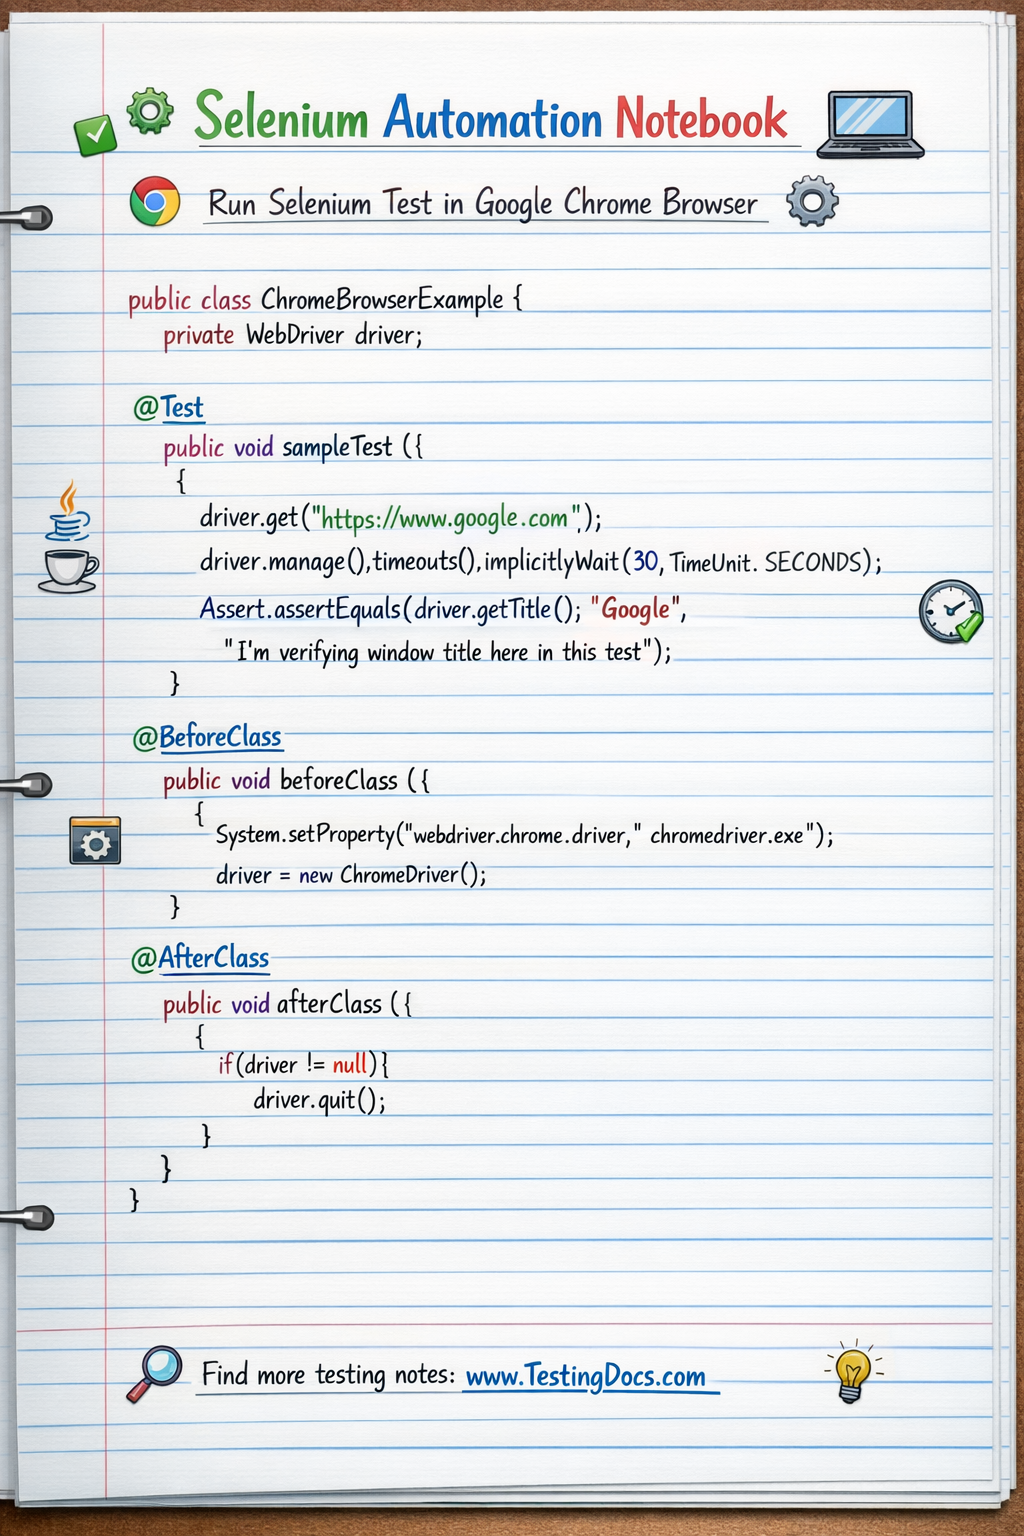 Selenium Automation Notebook
Run Selenium Test in Google Chrome Browser
public class ChromeBrowserExample {
private WebDriver driver;
@Test
public void sampleTest ({
{
driver.get("https://www.google.com");
driver.manage(),timeouts(),implicitlyWait(30, TimeUnit. SECONDS);
Assert.assertEquals(driver.getTitle(); "Google",
"I'm verifying window title here in this test");
}
@BeforeClass
public void beforeClass ({
{
System.setProperty("webdriver.chrome.driver," chromedriver.exe");
driver = new ChromeDriver();
}
@AfterClass
public void afterClass ({
{
if(driver != null){
driver.quit();
}
}
}
Find more testing notes: www.TestingDocs.com